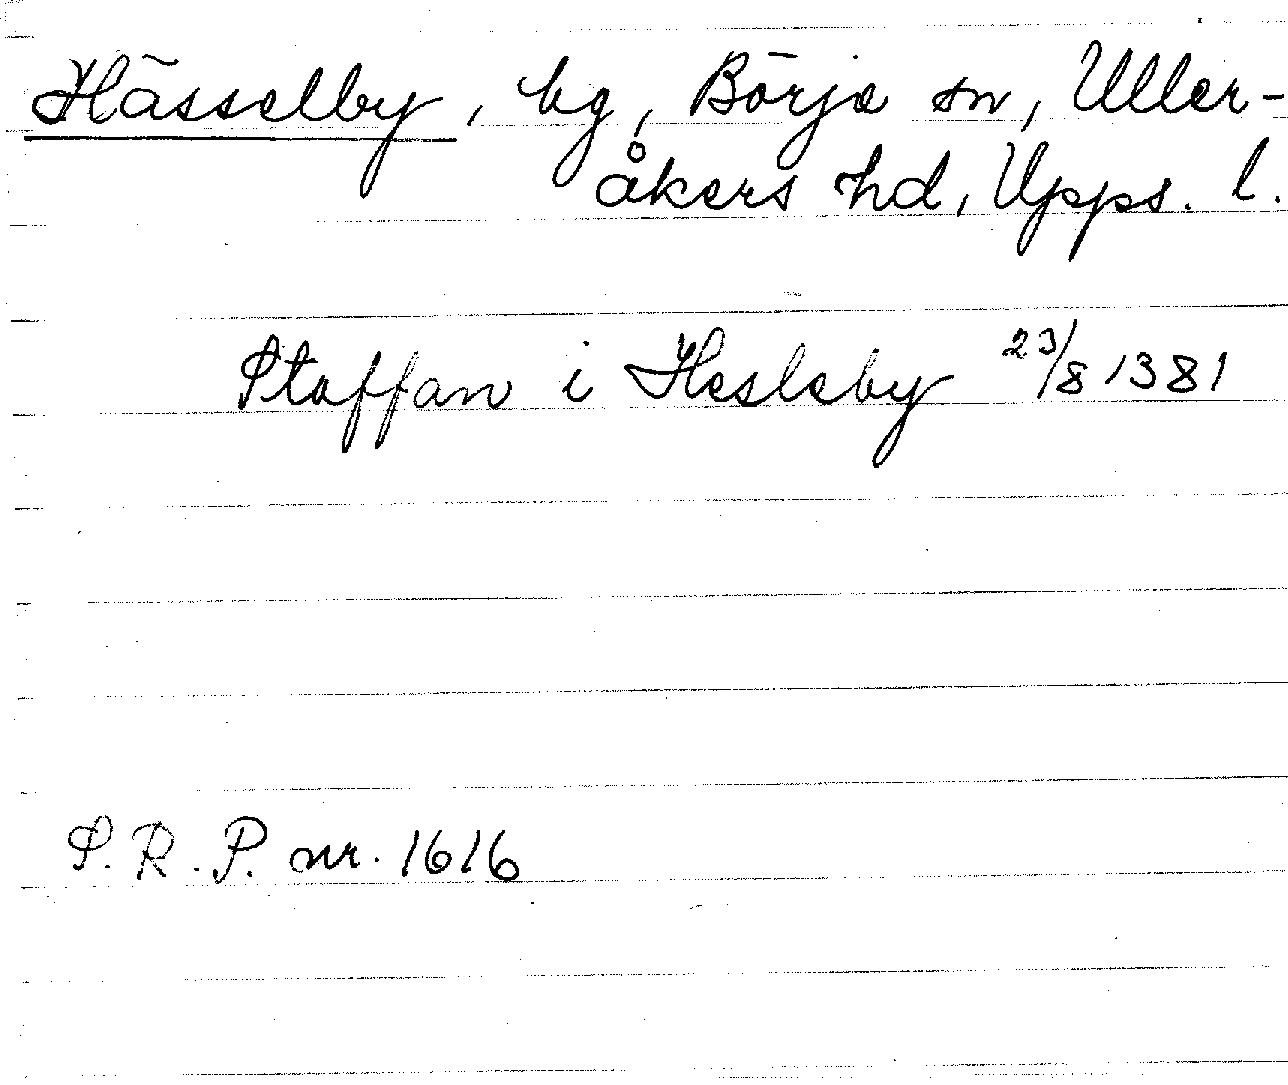 Hässelby, by, Börje sn, Uller-
åkers hd, Upps. l.
Staffan i Hesleby 23/8 1381
S.R.P. nr. 1616